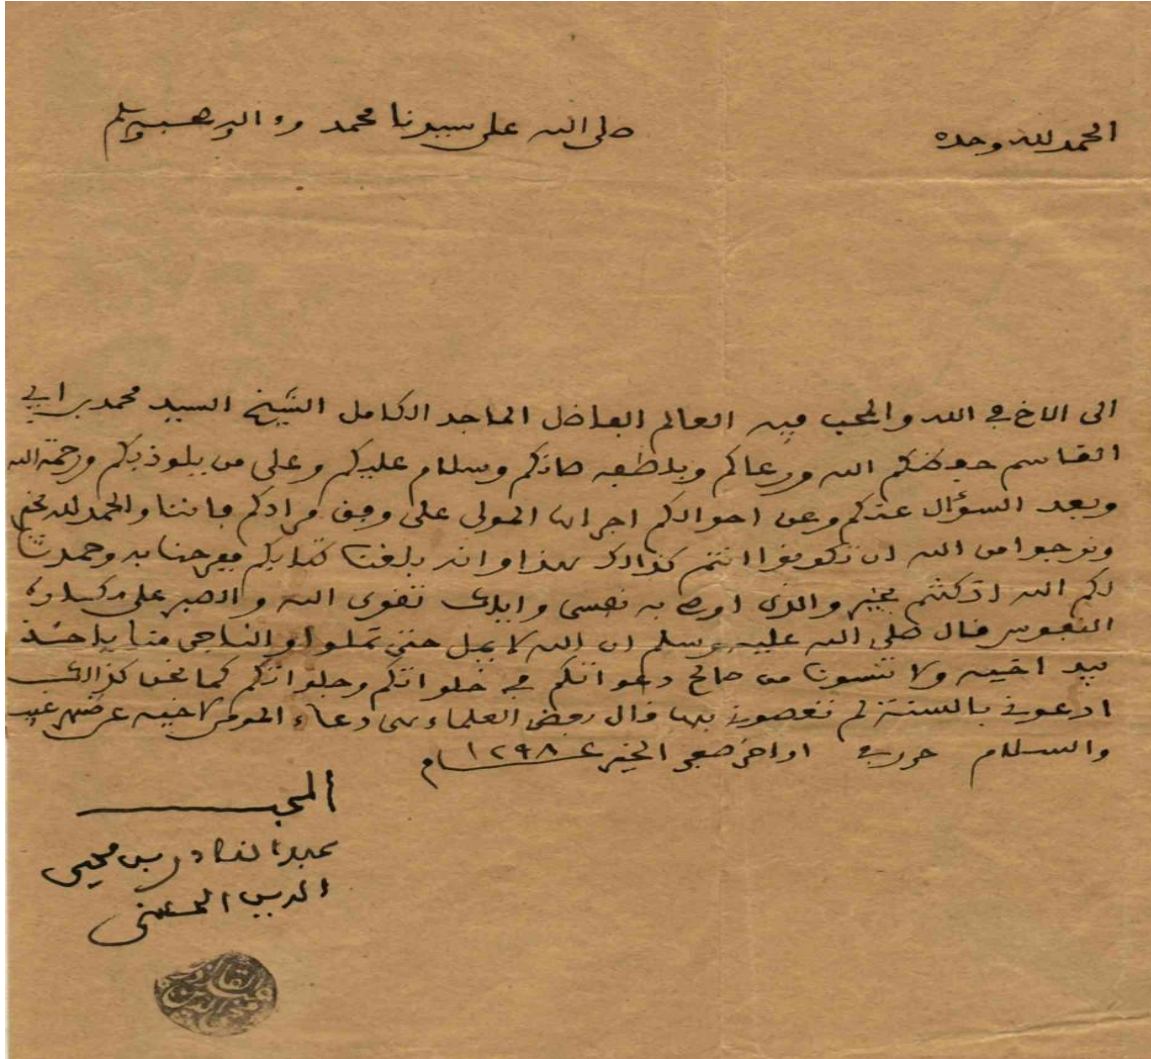 الحمد لله وحده صلى الله على سيدنا محمد وءاله وصحبه وسلم
الى الاخ في الله والمحب فيه العالم الفاضل الماجد الكامل الشيخ السيد محمد بن ابي
القاسم حفظكم الله ورعاكم وبلطفه صانكم وسلام عليكم وعلى من يلوذ بكم ورحمة الله
وبعد السؤال عنكم وعن احوالكم اجراها المولى على وفق مرادكم فاننا والحمد لله بخير
ونرجوا من الله ان تكونوا انتم كذالك هذا وانه بلغنا كتابكم ففرحنا به وحمدنا
لكم الله اذ كنتم بخير والذى اوصى به نفسى واياك تقوى الله والصبر على مكساره
النفوس قال صلى الله عليه وسلم ان الله لا يمل حتى تملوا والناجى منا ياخذ
بيد اخيه ولا تنسونا من صالح دعواتكم في خلواتكم وجلواتكم كما نحن كذالك
ادعونى بالسنة لم تعصونى بها قال بعض العلماء هى دعاء المومن لاخيه عن ظهر غيب
والسلام حرر في اواخر صفر الخير عــ١٢٩٨ـام
المحب
عبد القادر بن محيى
الدين الحسنى